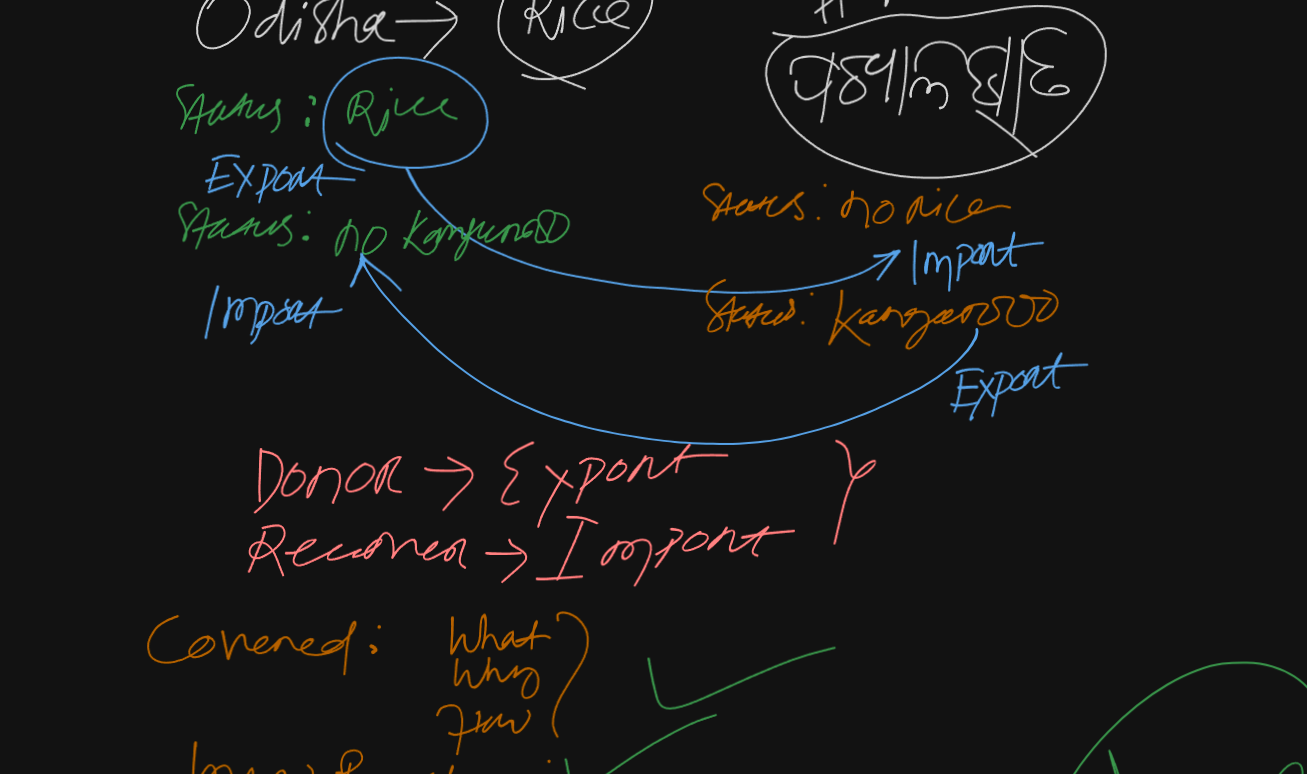 Odisha → Rice
Status: Rice
Export
Status: no Kangaroo
Import
Status: no rice
Import
Status: Kangarooo
Export
Donor → Export
Receiver → Import
Covered:
What
Why
How